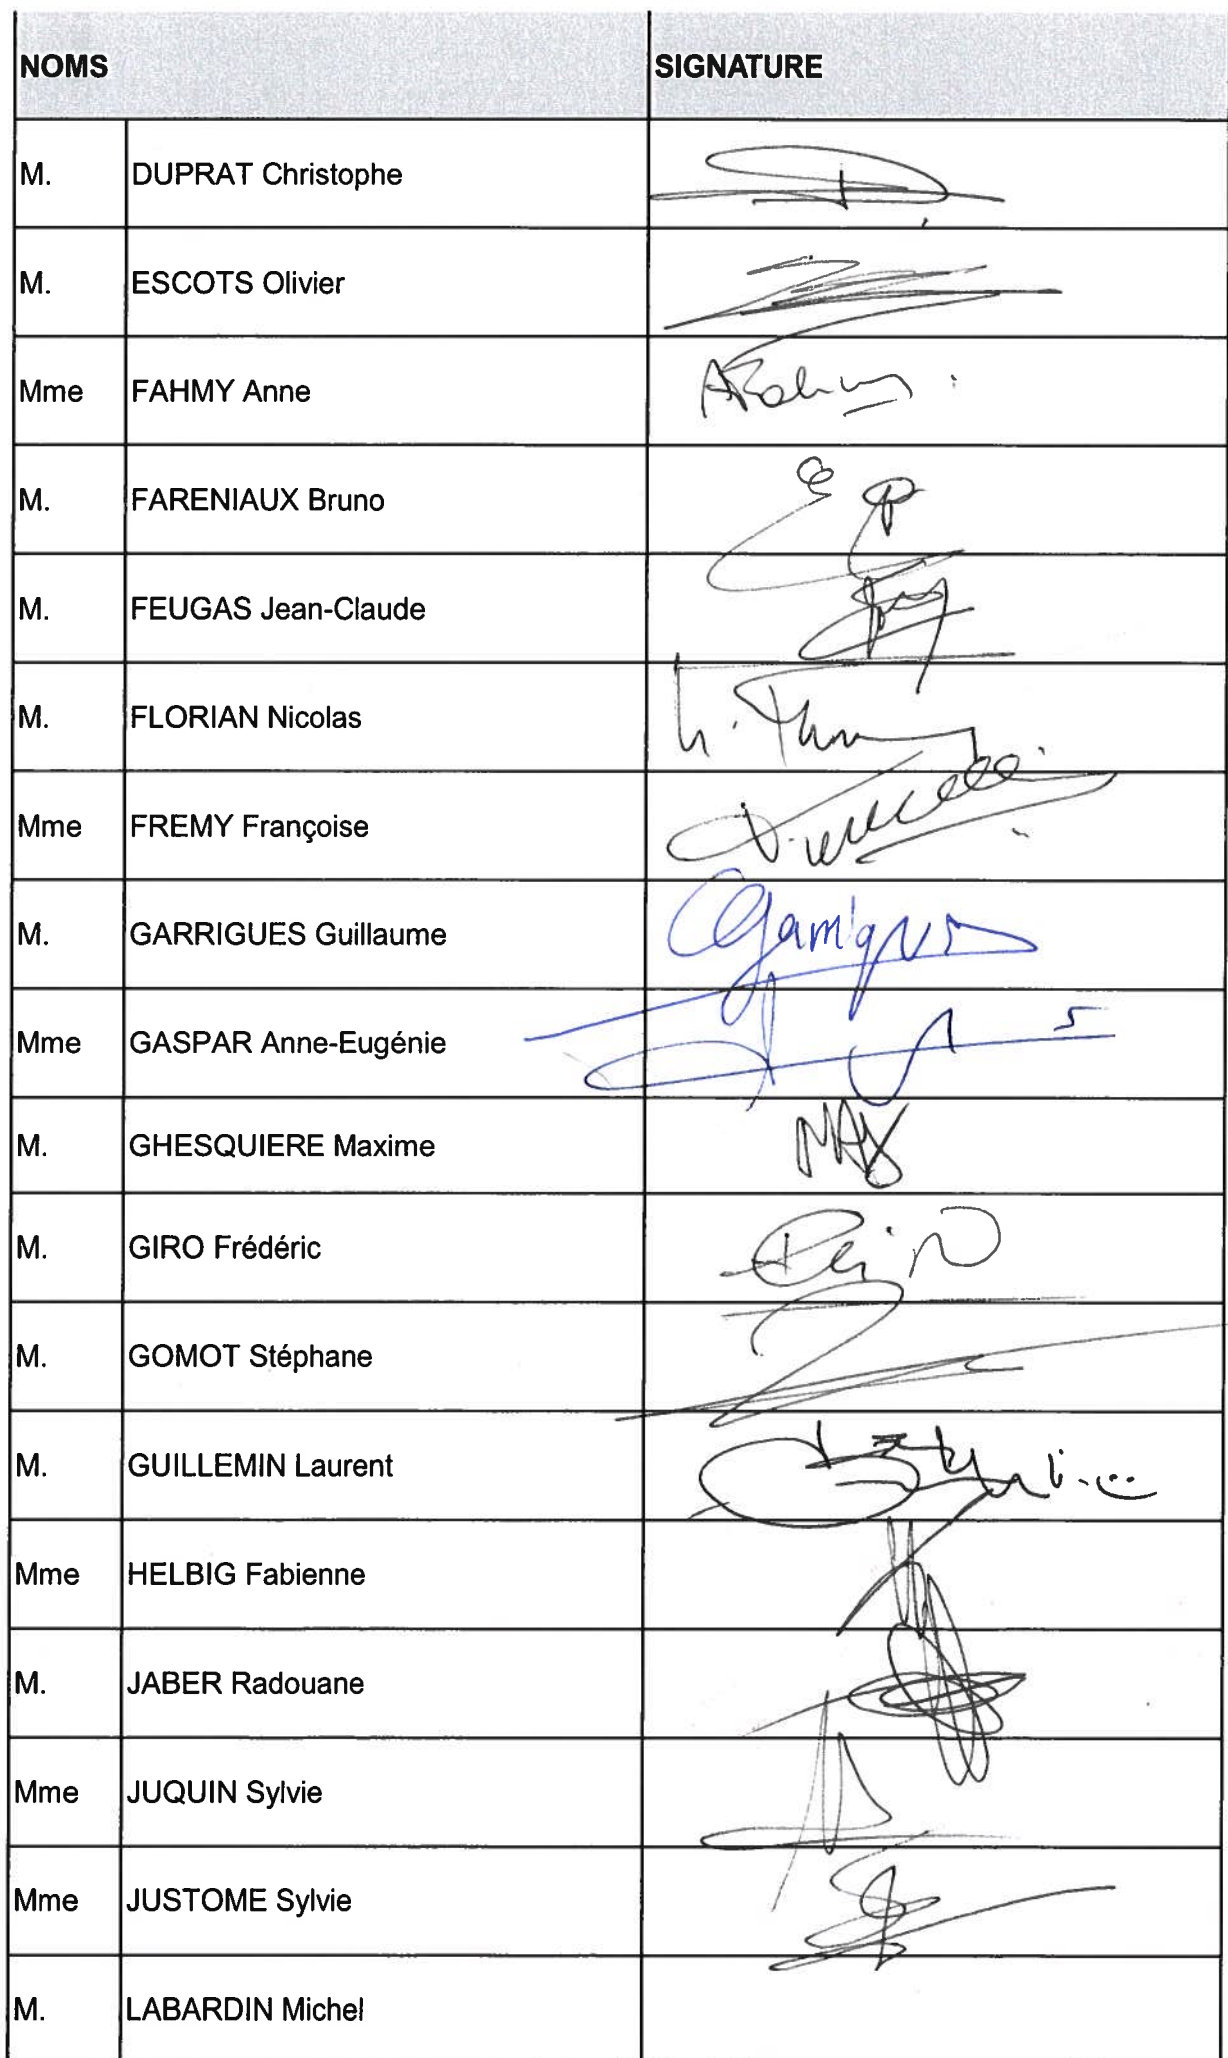 NOMS SIGNATURE
M. DUPRAT Christophe
M. ESCOTS Olivier
Mme FAHMY Anne
M. FARENIAUX Bruno
M. FEUGAS Jean-Claude
M. FLORIAN Nicolas
Mme FREMY Françoise
M. GARRIGUES Guillaume
Mme GASPAR Anne-Eugénie
M. GHESQUIERE Maxime MAX
M. GIRO Frédéric
M. GOMOT Stéphane
M. GUILLEMIN Laurent
Mme HELBIG Fabienne
M. JABER Radouane
Mme JUQUIN Sylvie
Mme JUSTOME Sylvie
M. LABARDIN Michel